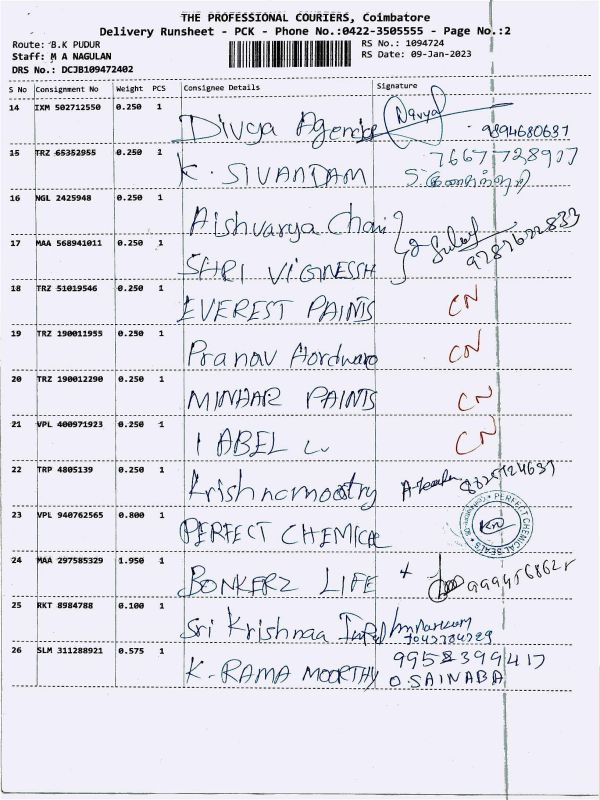 THE PROFESSIONAL COURIERS, Coimbatore
Delivery Runsheet - PCK - Phone No.:0422-3505555 - Page No.:2
Route: B.K PUDUR
RS No.: 1094724
Staff: M A NAGULAN
RS Date: 09-Jan-2023
DRS No.: DCJB109472402
S No Consignment No Weight PCS Consignee Details Signature
14 IXM 502712550 0.250 1
Divya Agencise Divya 9894680637
15 TRZ 65352955 0.250 1 7667728907
K. SIVANDAM
16 NGL 2425948 0.250 1
Aishvarya Chai
17 MAA 568941011 0.250 1
SHRI VIGNESSH
18 TRZ 51019546 0.250 1
EVEREST PAINTS CN
19 TRZ 190011955 0.250 1
Pranav Hordware CN
20 TRZ 190012290 0.250 1
MINHAR PAINTS CN
21 VPL 400971923 0.250 1
I ABEL CN
22 TRP 4805139 0.250 1
Krishnamoorty
23 VPL 940762565 0.800 1
PERFECT CHEMICAL
PERFECT CHEMICAL SEALS
24 MAA 297585329 1.950 1
BONKERZ LIFE
25 RKT 8984788 0.100 1
Sri Krishnaa
26 SLM 311288921 0.575 1 9952399417
K. RAMA MOORTHY O SAINABA